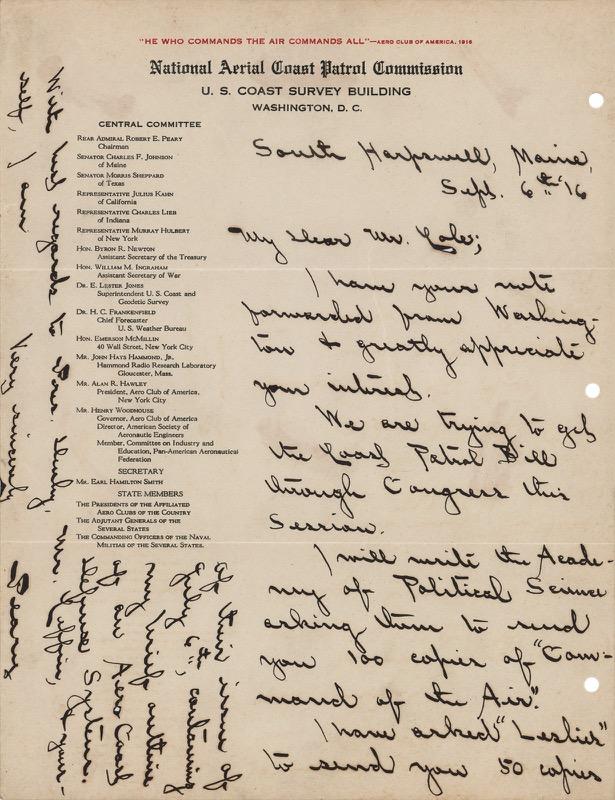 "HE WHO COMMANDS THE AIR COMMANDS ALL"—AERO CLUB OF AMERICA, 1916
National Aerial Coast Patrol Commission
U. S. COAST SURVEY BUILDING
WASHINGTON, D. C.
CENTRAL COMMITTEE
REAR ADMIRAL ROBERT E. PEARY
Chairman
SENATOR CHARLES F. JOHNSON
of Maine
SENATOR MORRIS SHEPPARD
of Texas
REPRESENTATIVE JULIUS KAHN
of California
REPRESENTATIVE CHARLES LIEB
of Indiana
REPRESENTATIVE MURRAY HULBERT
of New York
HON. BYRON R. NEWTON
Assistant Secretary of the Treasury
HON. WILLIAM M. INGRAHAM
Assistant Secretary of War
DR. E. LESTER JONES
Superintendent U. S. Coast and
Geodetic Survey
DR. H. C. FRANKENFIELD
Chief Forecaster
U. S. Weather Bureau
HON. EMERSON MCMILLIN
40 Wall Street, New York City
MR. JOHN HAYS HAMMOND, JR.
Hammond Radio Research Laboratory
Gloucester, Mass.
MR. ALAN R. HAWLEY
President, Aero Club of America,
New York City
MR. HENRY WOODHOUSE
Governor, Aero Club of America
Director, American Society of
Aeronautic Engineers
Member, Committee on Industry and
Education, Pan-American Aeronautical
Federation
SECRETARY
MR. EARL HAMILTON SMITH
STATE MEMBERS
THE PRESIDENTS OF THE AFFILIATED
AERO CLUBS OF THE COUNTRY
THE ADJUTANT GENERALS OF THE
SEVERAL STATES
THE COMMANDING OFFICERS OF THE NAVAL
MILITIAS OF THE SEVERAL STATES.
South Harpswell, Maine,
Sept. 6th '16
My dear Mr. Cole;
I have your note
forwarded from Washing-
ton & greatly appreciate
your interest.
We are trying to get
the Coast Patrol Bill
through Congress this
Session.
I will write the Acade-
my of Political Science
asking them to send
you 100 copies of "Com-
mand of the Air".
I have asked "Leslie's"
to send you 50 copies
of their issue of
July 6th, containing
my brief outline
of an Aero Coast
defense System.
With best regards to Pres. Mr. & your-
self, I am
Very sincerely
Peary